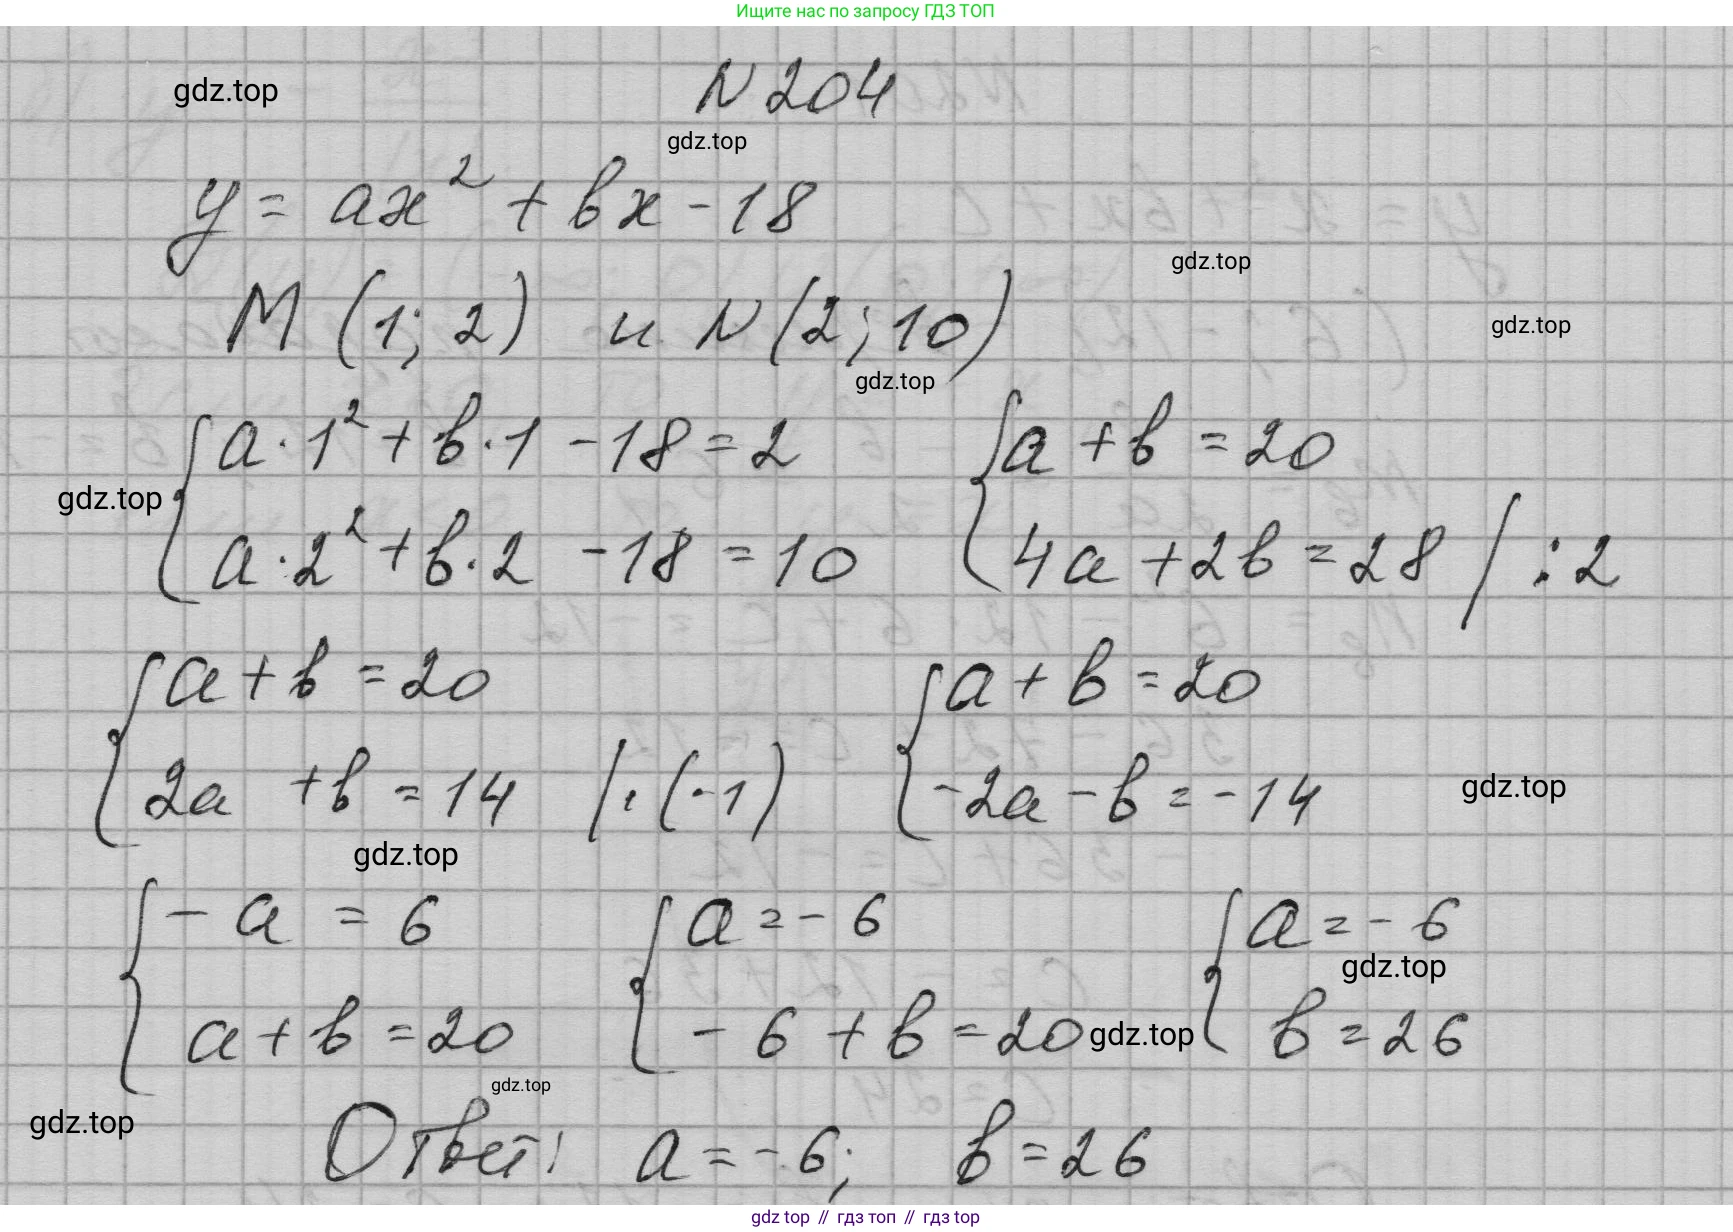 Ищите нас по запросу ГДЗ ТОП
gdz.top
N 204
gdz.top
y = ax² + bx - 18
gdz.top
M (1; 2) и N (2; 10)
gdz.top
gdz.top
{ a · 1² + b · 1 - 18 = 2 { a + b = 20
gdz.top
a · 2² + b · 2 - 18 = 10 4a + 2b = 28 / : 2
{ a + b = 20 { a + b = 20
2a + b = 14 / · (-1) -2a - b = -14
gdz.top
gdz.top
{ - a = 6 { a = - 6 { a = - 6
gdz.top
a + b = 20 - 6 + b = 20 b = 26
gdz.top
gdz.top
gdz.top
Ответ: a = - 6; b = 26
gdz top // гдз топ // гдз top